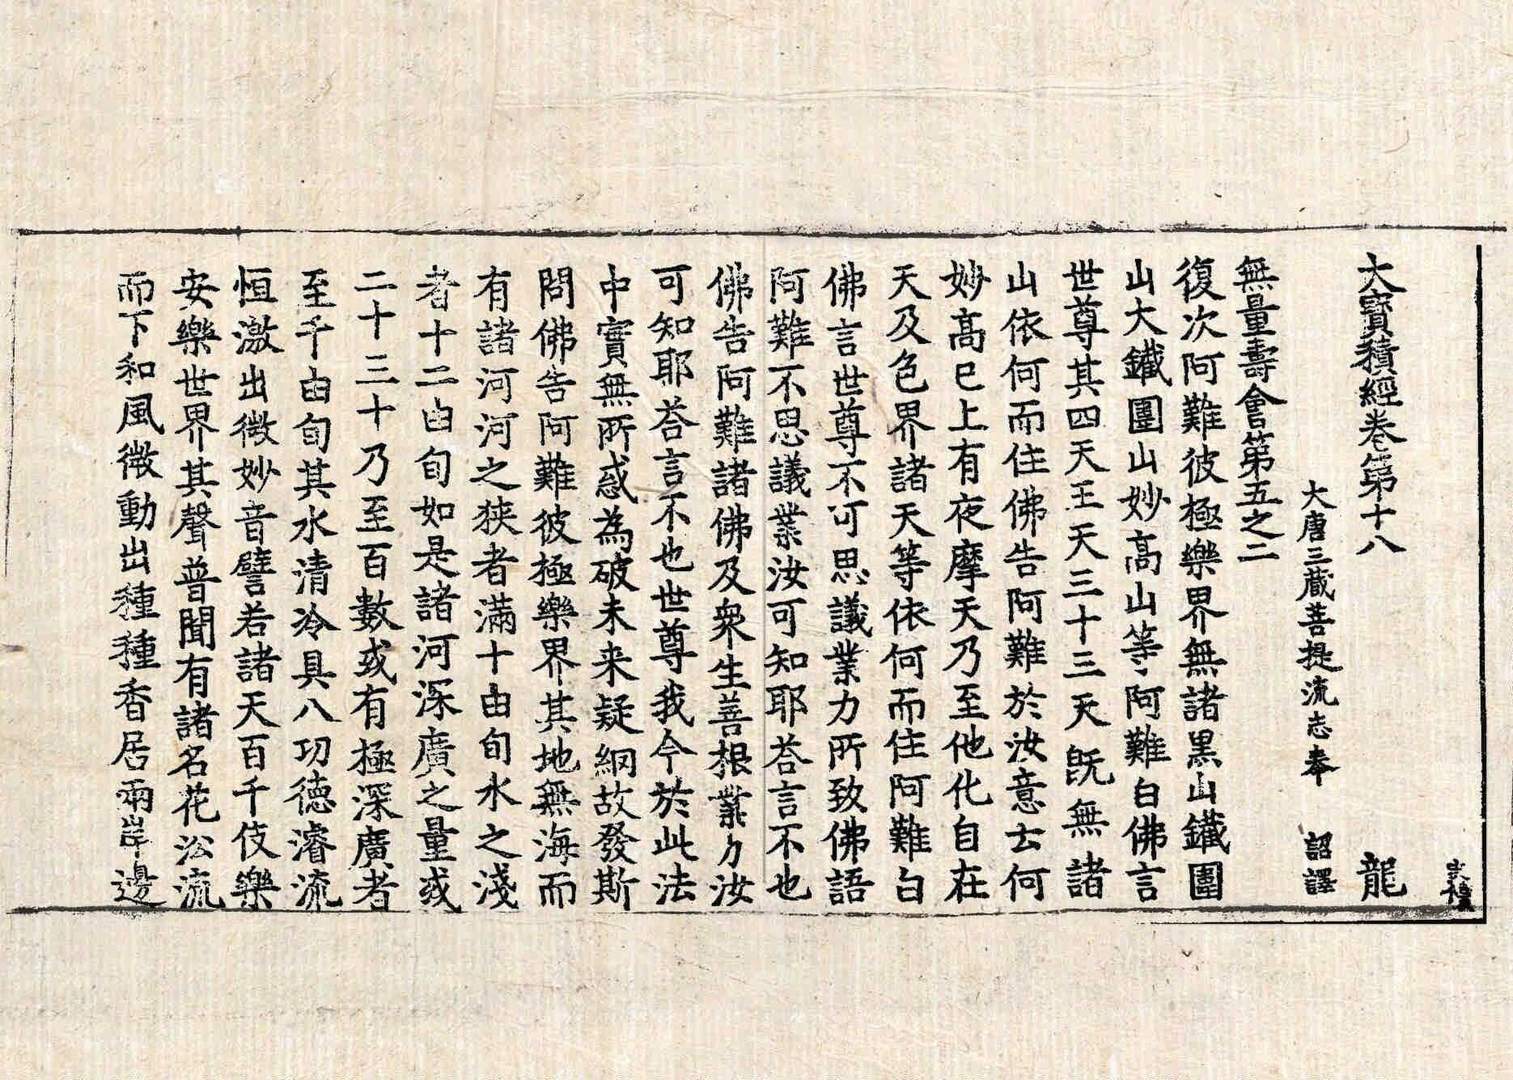 大寶積經卷第十八　龍
大唐三藏菩提流志奉　詔譯
無量壽會第五之二
復次阿難彼極樂界無諸黑山鐵圍
山大鐵圍山妙高山等阿難白佛言
世尊其四天王天三十三天既無諸
山依何而住佛告阿難於汝意云何
妙高已上有夜摩天乃至他化自在
天及色界諸天等依何而住阿難白
佛言世尊不可思議業力所致佛語
阿難不思議業汝可知耶荅言不也
佛告阿難諸佛及衆生善根業力汝
可知耶荅言不也世尊我今於此法
中實無所惑為破未来疑網故發斯
問佛告阿難彼極樂界其地無海而
有諸河河之狹者滿十由旬水之淺
者十二由旬如是諸河深廣之量或
二十三十乃至百數或有極深廣者
至千由旬其水清冷具八功德濬流
恒激出微妙音譬若諸天百千伎樂
安樂世界其聲普聞有諸名花㳂流
而下和風微動出種種香居兩岸邊